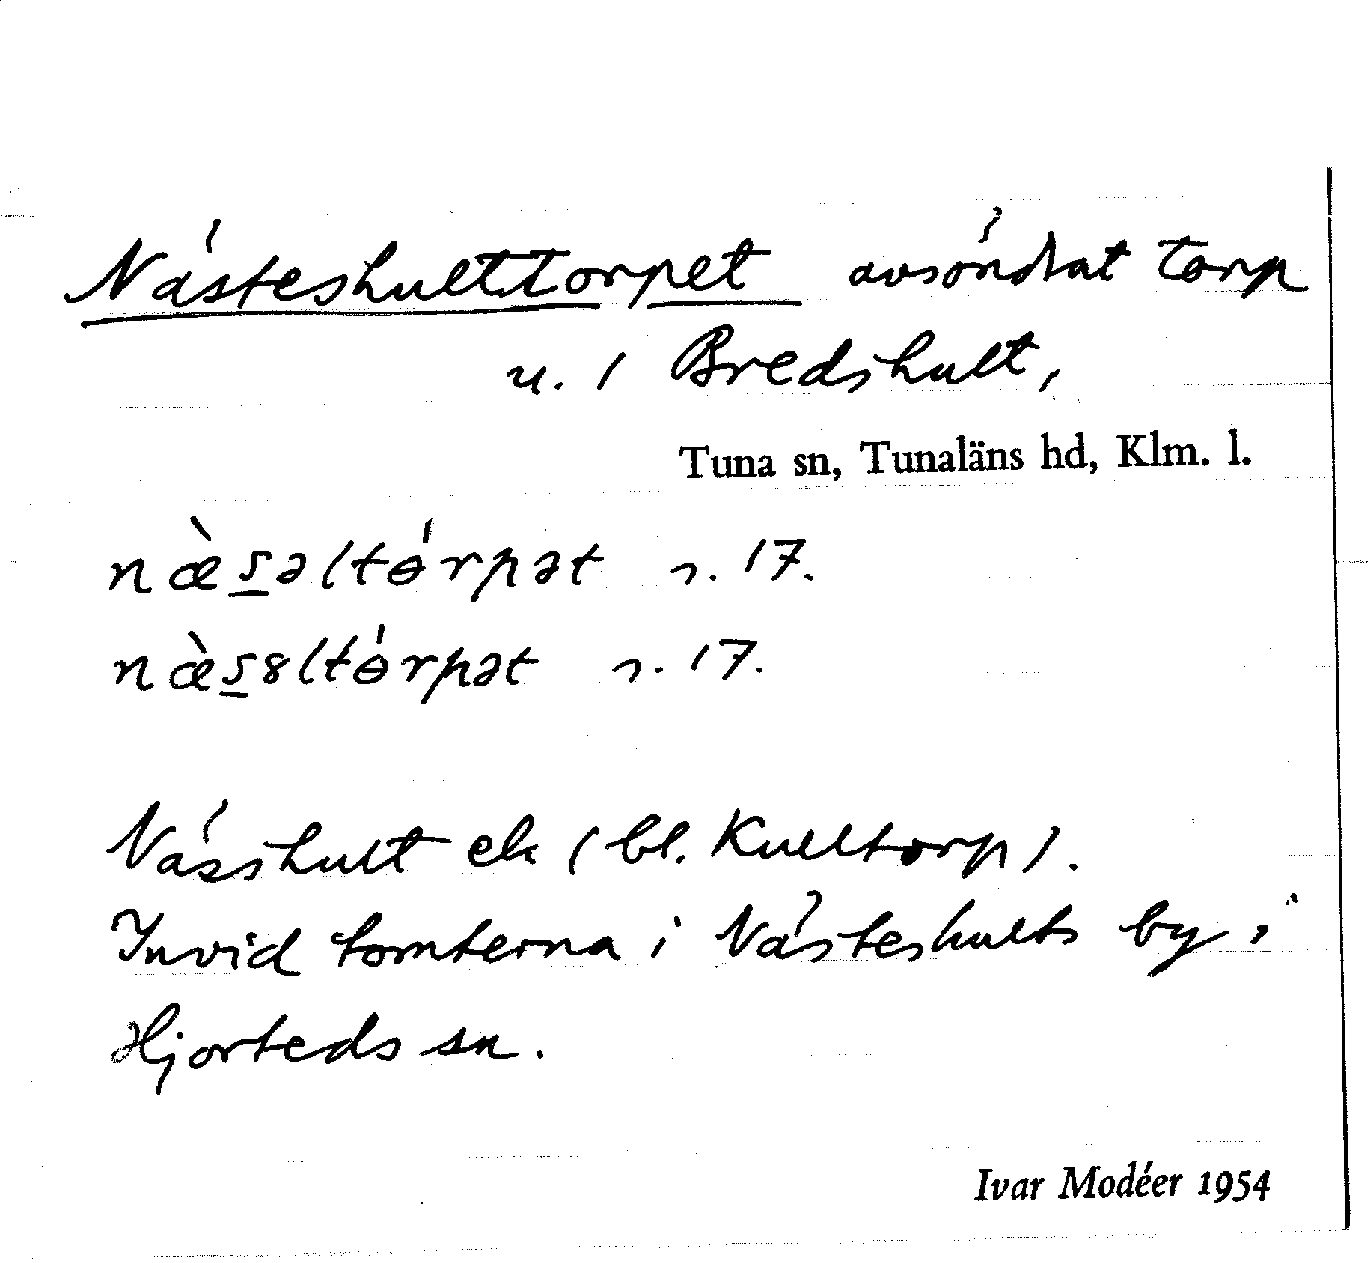 Nästeshulttorpet avsöndrat torp
u. 1 Bredshult,
Tuna sn, Tunaläns hd, Klm. l.
næ̀s̲əltɵ́rpət r. 17.
næ̀s̲ȣltɵ́rpət r. 17.
Nässhult ek (bl. Kulltorp).
Invid tomterna i Nästeshults by i
Hjorteds sn.
Ivar Modéer 1954